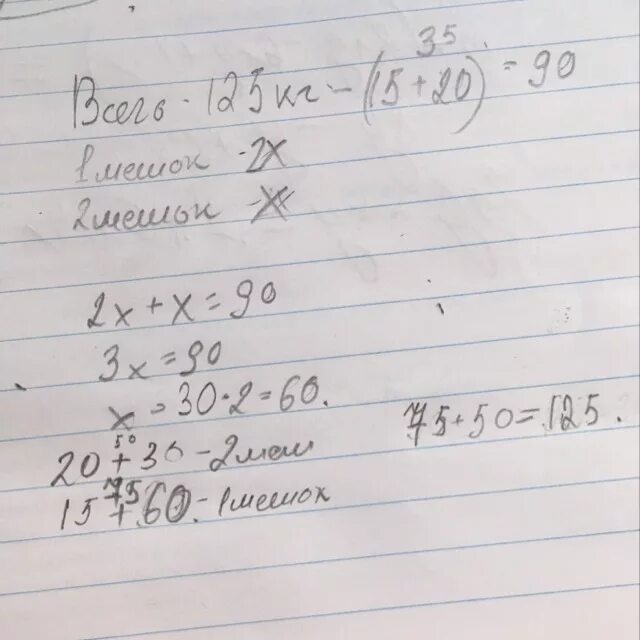 35
Всего - 125 кг - (15 + 20) = 90
1 мешок - 2x
2 мешок - x
2x + x = 90
3x = 90
x = 30 · 2 = 60.
75 + 50 = 125.
50
20 + 30 - 2 меш
75
15 + 60 - 1 мешок